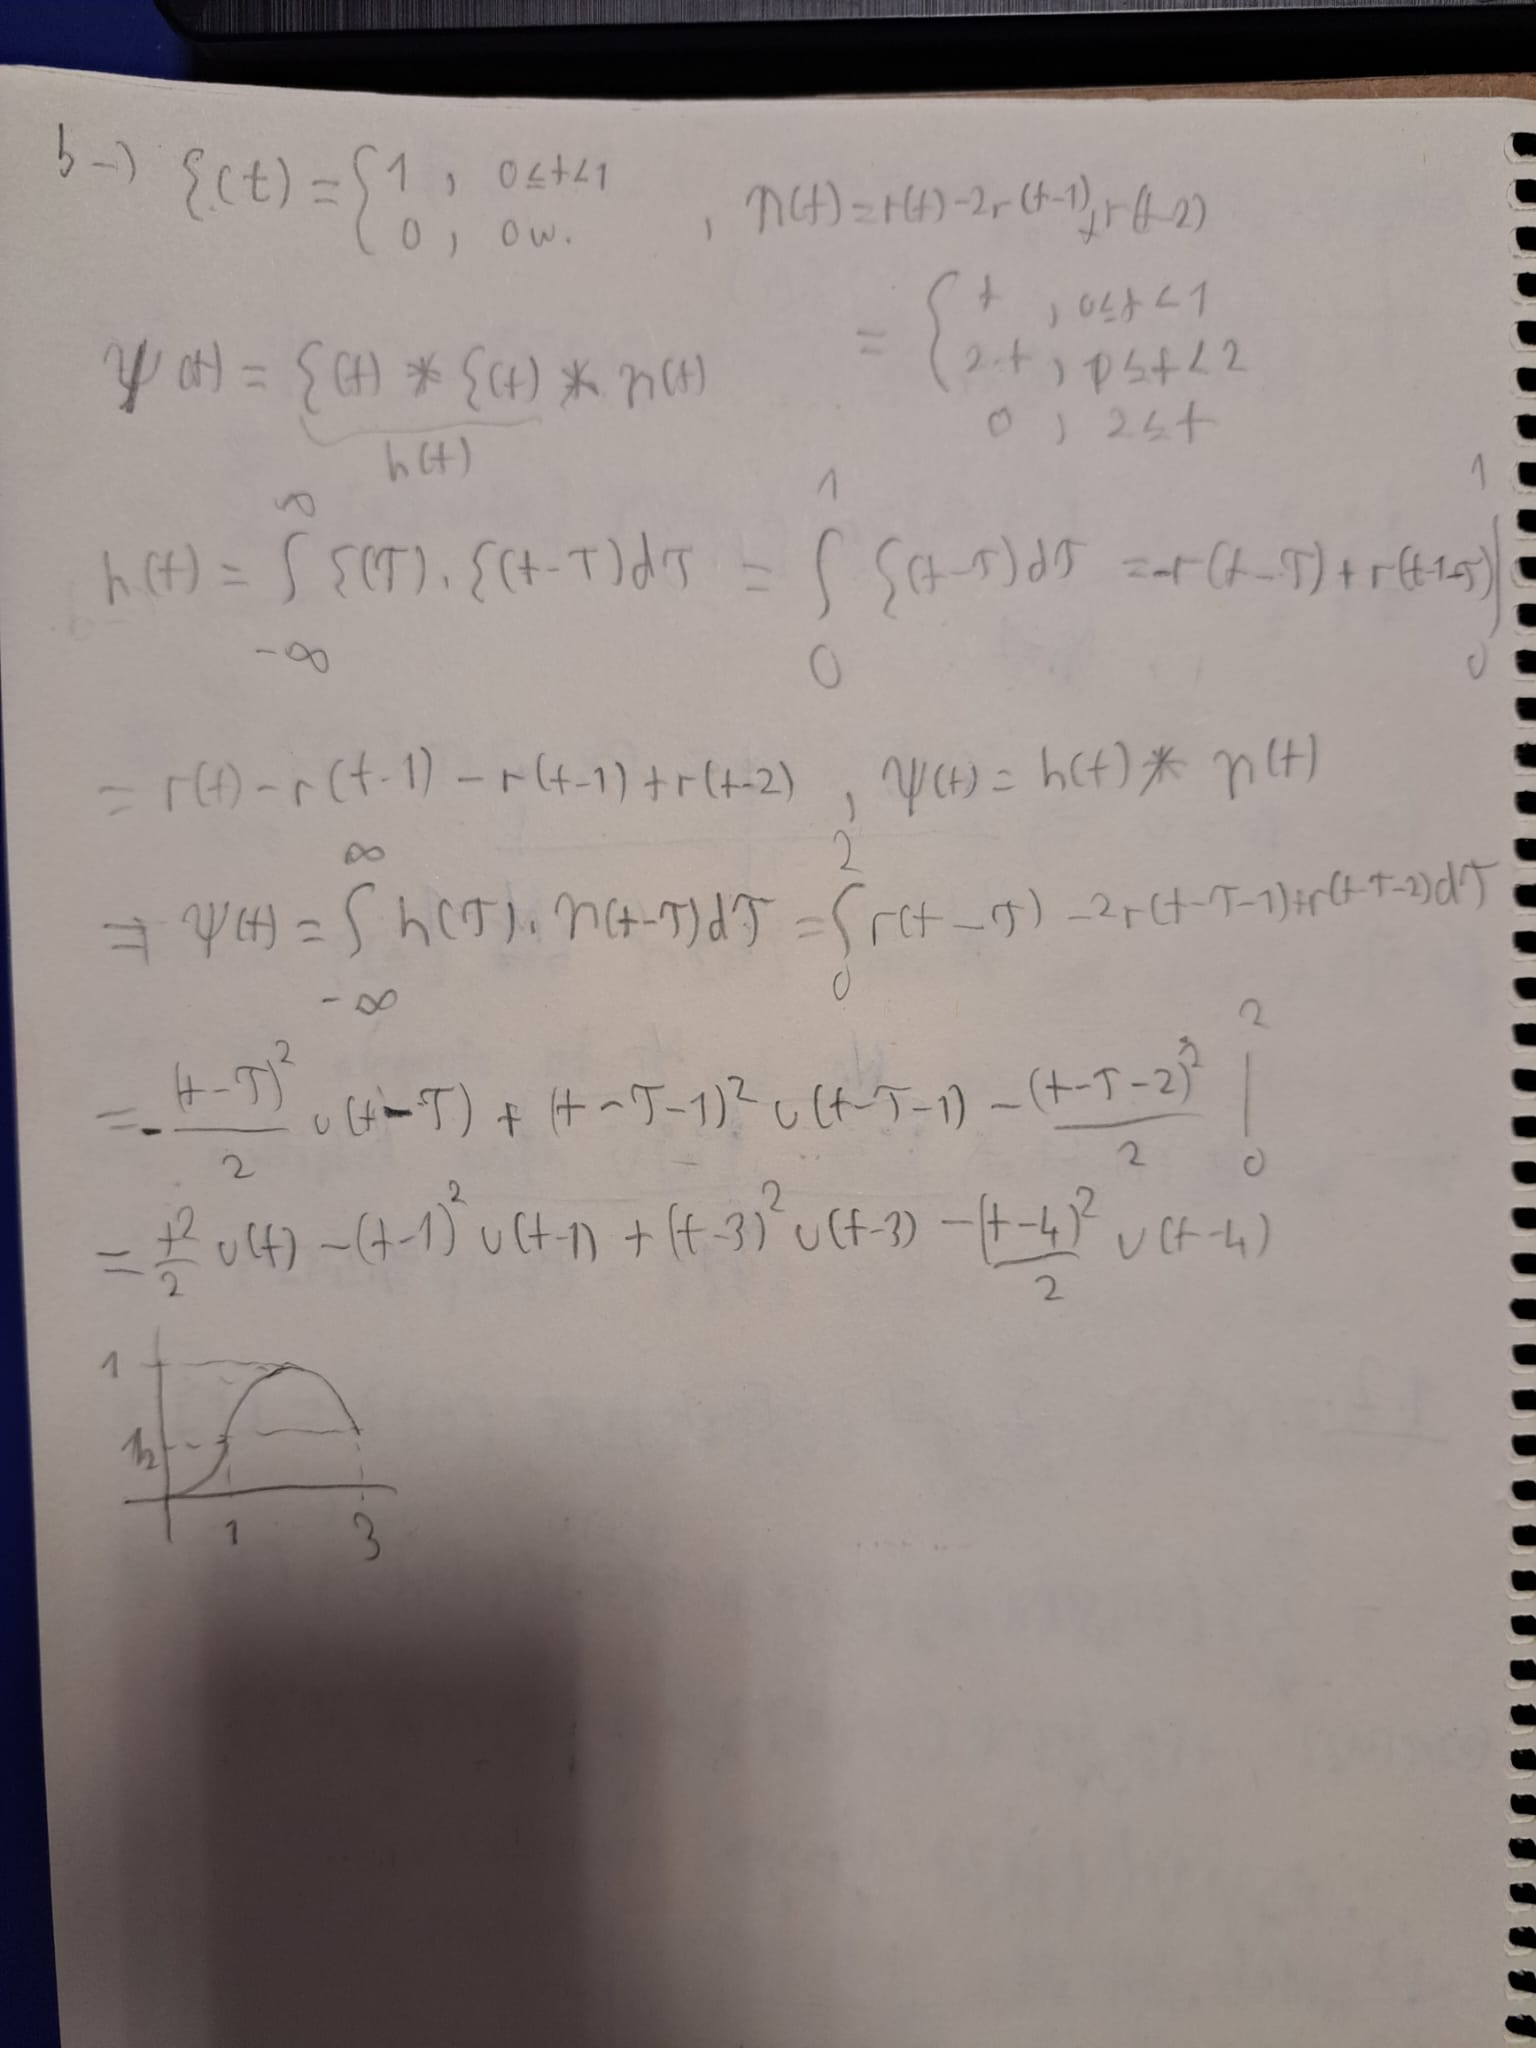 b-) ξ(t) = { 1 , 0≤t<1
0 , ow. , η(t) = r(t) - 2r(t-1) + r(t-2)
= { t , 0≤t<1
ψ(t) = ξ(t) * ξ(t) * η(t)
2-t , 1≤t<2
h(t)
0 , 2≤t
h(t) = ∫_{-∞}^{∞} ξ(τ).ξ(t-τ)dτ = ∫_0^1 ξ(t-τ)dτ = -r(t-τ) + r(t-1-τ) |_0^1
= r(t) - r(t-1) - r(t-1) + r(t-2) , ψ(t) = h(t) * η(t)
⇒ ψ(t) = ∫_{-∞}^{∞} h(τ).η(t-τ)dτ = ∫_0^2 r(t-τ) - 2r(t-τ-1) + r(t-τ-2)dτ
= - (t-τ)²/2 u(t-τ) + (t-τ-1)² u(t-τ-1) - (t-τ-2)²/2 |_0^2
= t²/2 u(t) - (t-1)² u(t-1) + (t-3)² u(t-3) - (t-4)²/2 u(t-4)
1
1/2
1 3